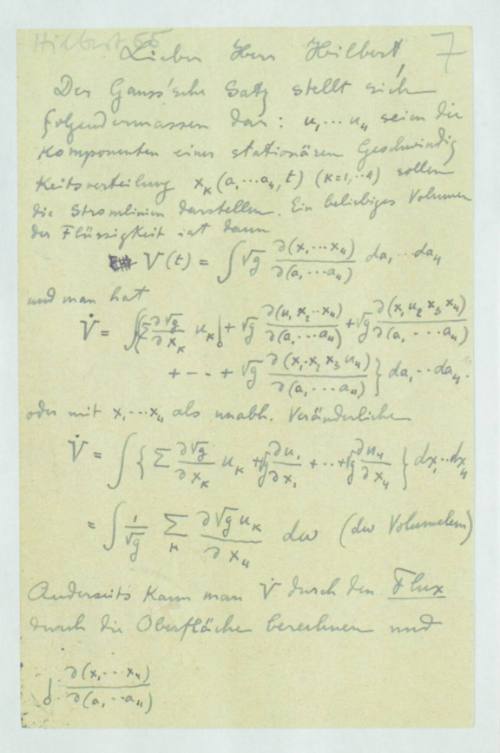 Hilbert 55
Lieber Herr Hilbert! 7
Der Gauss'sche Satz stellt sich
folgendermassen dar: u₁⋯u₄ seien die
Komponenten einer stationären Geschwindig
keitsverteilung x_κ(a₁…a₄, t) (κ=1,..4) sollen
die Stromlinien darstellen. Ein beliebiges Volumen
der Flüssigkeit ist dann
V(t) = ∫ √g ∂(x₁⋯x₄)/∂(a₁⋯a₄) da₁⋯da₄
und man hat
V̇ = ∫{Σ ∂√g/∂x_κ u_κ + √g ∂(u₁ x₂⋯x₄)/∂(a₁⋯a₄) + √g ∂(x₁ u₂ x₃ x₄)/∂(a₁⋯a₄)
+ -- + √g ∂(x₁ x₂ x₃ u₄)/∂(a₁⋯a₄) } da₁⋯da₄.
oder mit x₁⋯x₄ als unabh. Veränderlichen
V̇ = ∫ { Σ ∂√g/∂x_κ u_κ + √g ∂u₁/∂x₁ + ⋯ + √g ∂u₄/∂x₄ } dx₁⋯dx₄
= ∫ 1/√g Σ_κ ∂√g u_κ/∂x_κ dω (dω Volumelem)
Anderseits kann man V̇ durch den Flux
durch die Oberfläche berechnen und
∂(x₁⋯x₄)/∂(a₁⋯a₄)